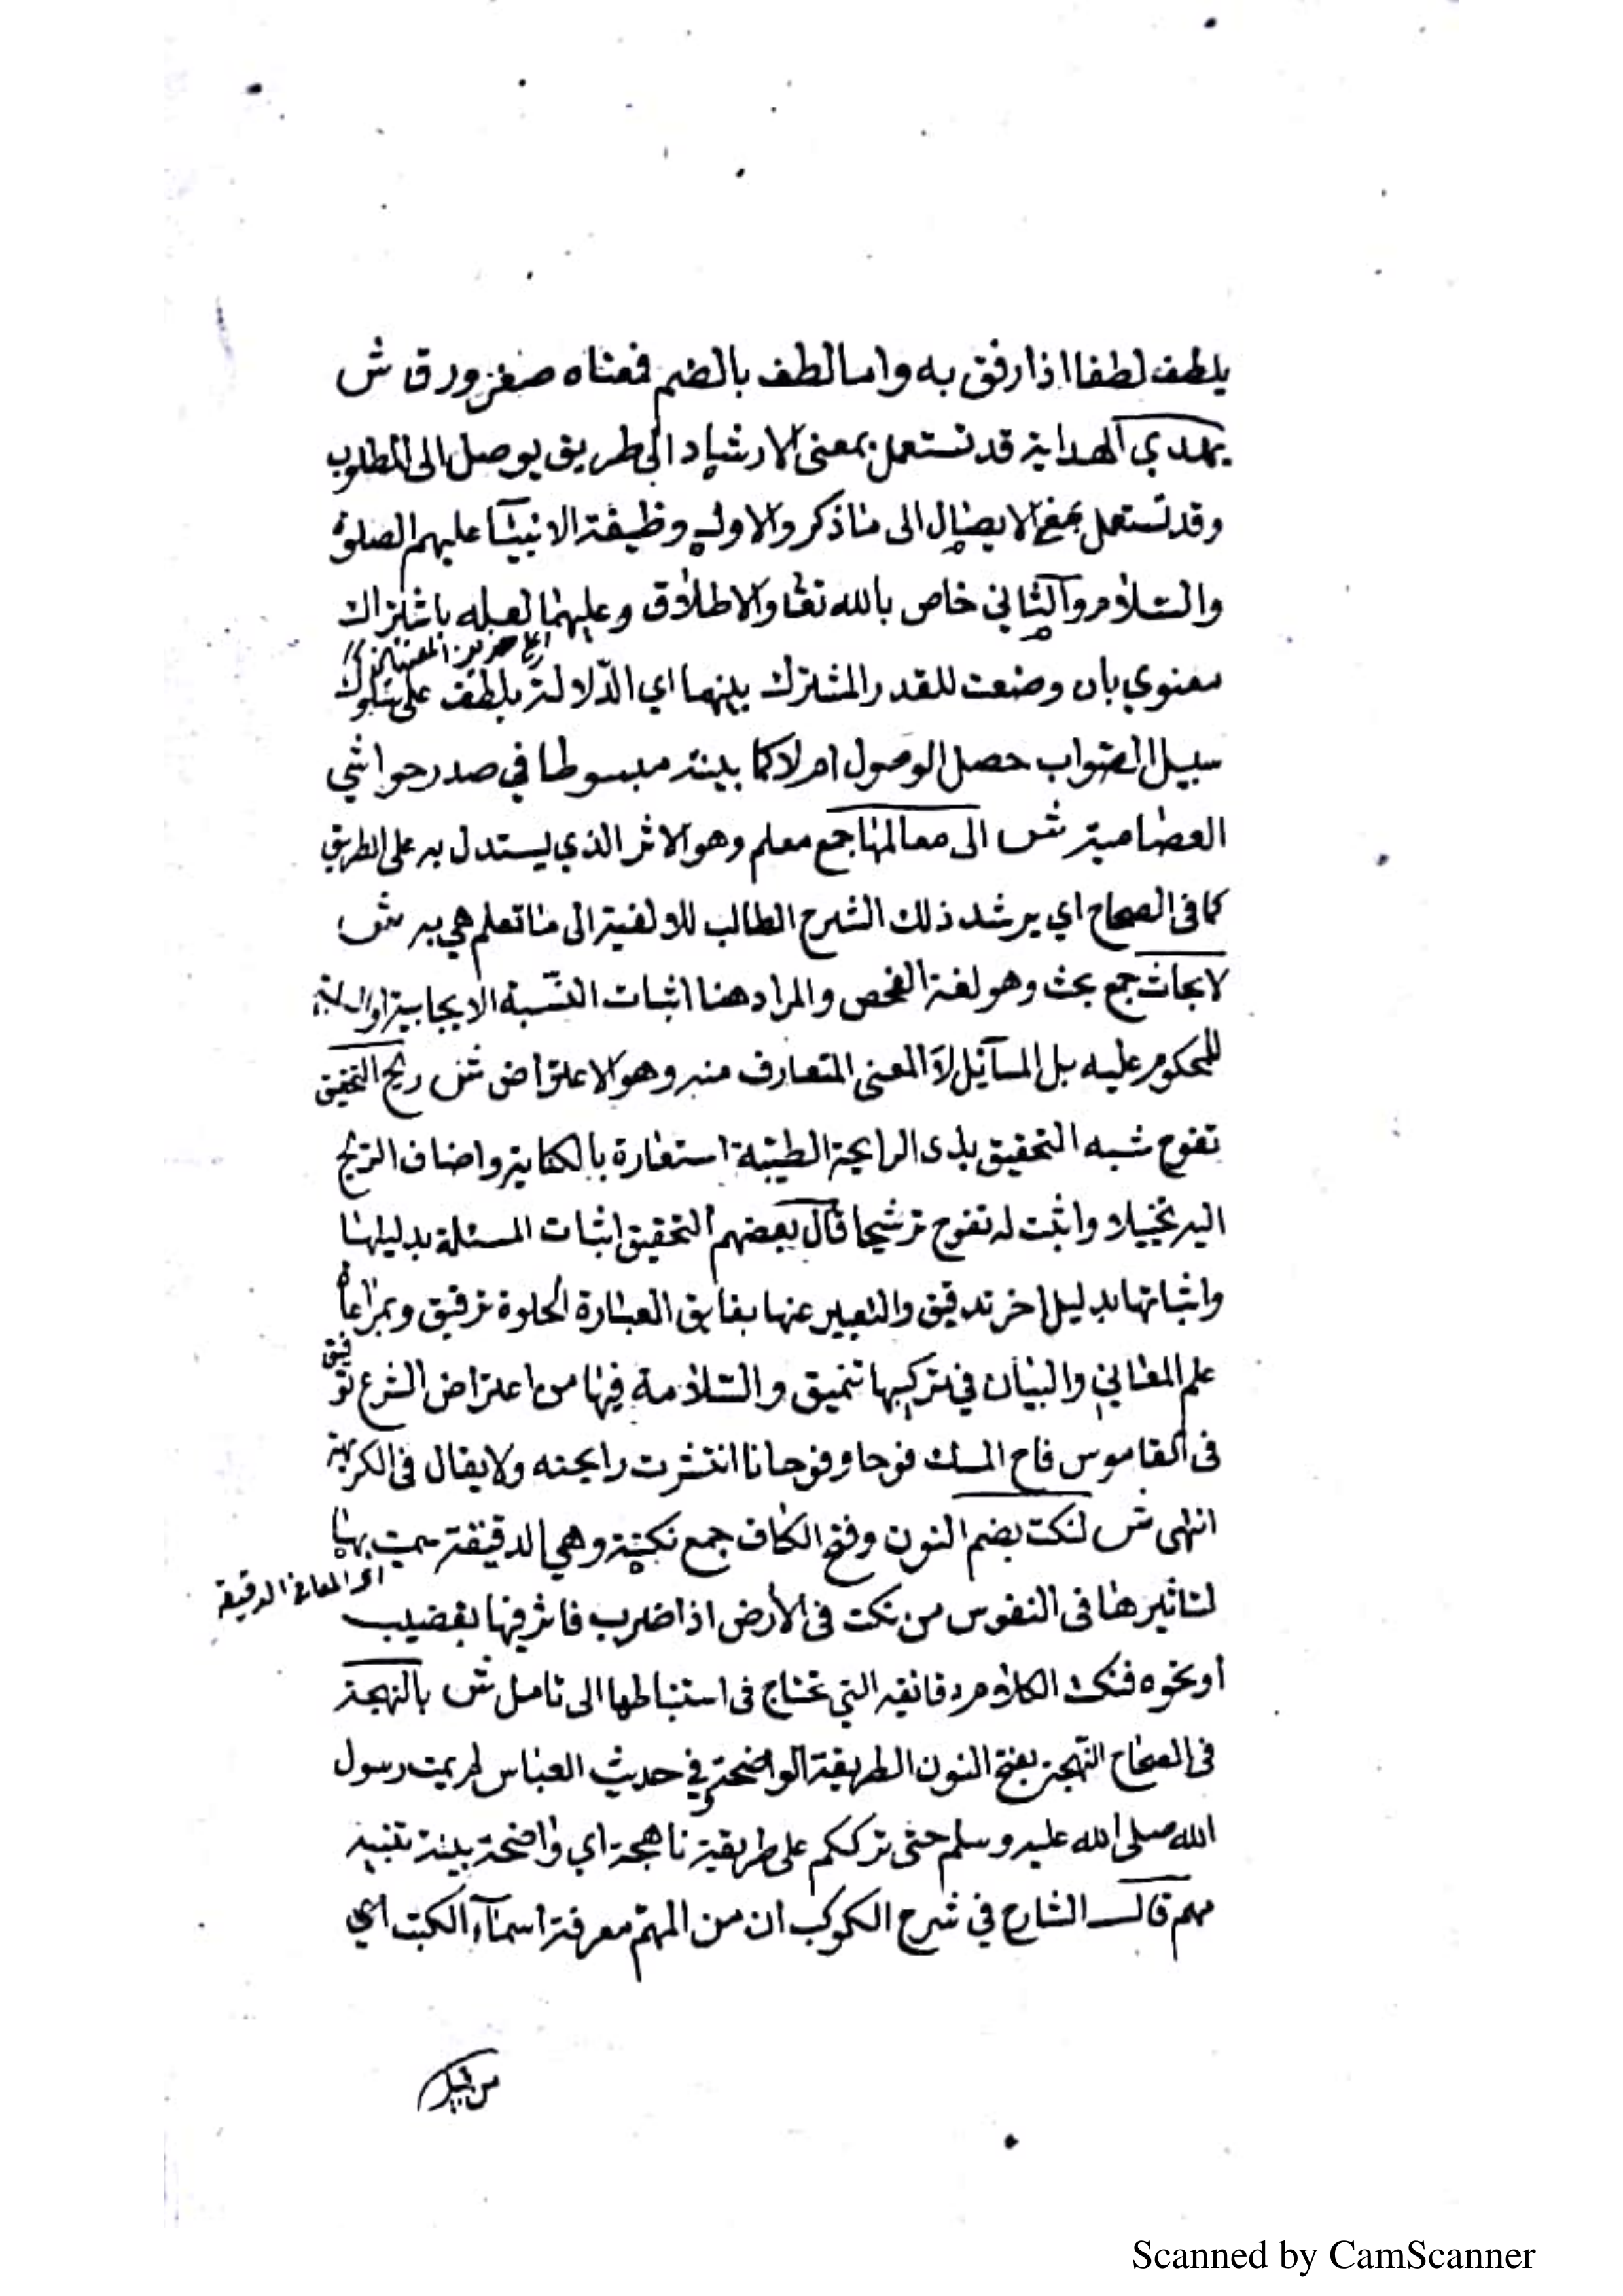 يلطف لطفا اذا رفق به واما لطف بالضم فمعناه صغر ورق ش
يهدي الهداية قد تستعمل بمعنى الارشاد الى طريق يوصل الى المطلوب
وقد تستعمل بمعنى الايصال الى ما ذكر والاول وظيفة الانبيآ عليهم الصلوة
والسلام والثاني خاص بالله تعا والاطلاق وعليهما لعله باشتراك
معنوي بان وضعت للقدر المشترك بينهما اي الدّلالة بلطف على سلوك
سبيل الصواب حصل الوصول ام لا كما بينته مبسوطا في صدر حواشي
العصامية ش الى معالمها جمع معلم وهو الاثر الذي يستدل به على الطريق
كما في الصحاح اي يرشد ذلك الشرح الطالب للالفية الى ما تعلم هي به ش
لابحاث جمع بحث وهو لغة الفحص والمراد هنا اثبات النسبة الايجابية او السلبية
للمحكوم عليه بل المسآئل لا المعنى المتعارف منه وهو الاعتراض ش ريح التحقيق
تفوح شبه التحقيق بذي الرايحة الطيبة استعارة بالكناية واضاف الريح
اليه تخييلا واثبت له تفوح ترشيحا قال بعضهم التحقيق اثبات المسئلة بدليلها
واثباتها بدليل اخر تدقيق والتعبير عنها بفايق العبارة الحلوة ترقيق وبمراعاة
علم المعاني والبيان في تركيبها تنميق والسلامة فيها من اعتراض الشرع توفيق
في القاموس فاح المسك فوحا وفوحانا انتشرت رايحته ولا يقال في الكريهة
انتهى ش لنكت بضم النون وفتح الكاف جمع نكتة وهي الدقيقة سميت بها
اي المعاني الدقيقة
لتاثيرها في النفوس من نكت في الأرض اذا ضرب فاثر فيها بقضيب
أو نحوه فنكت الكلام دقائقه التي تحتاج في استنباطها الى تامل ش بالنهجة
في الصحاح النهجة بفتح النون الطريقة الواضحة وفي حديث العباس لم يمت رسول
الله صلى الله عليه وسلم حتى ترككم على طريقة ناهجة اي واضحة بينة تنبيه
مهم قال الشارح في شرح الكوكب ان من المهم معرفة اسمآء الكتب اي
Scanned by CamScanner